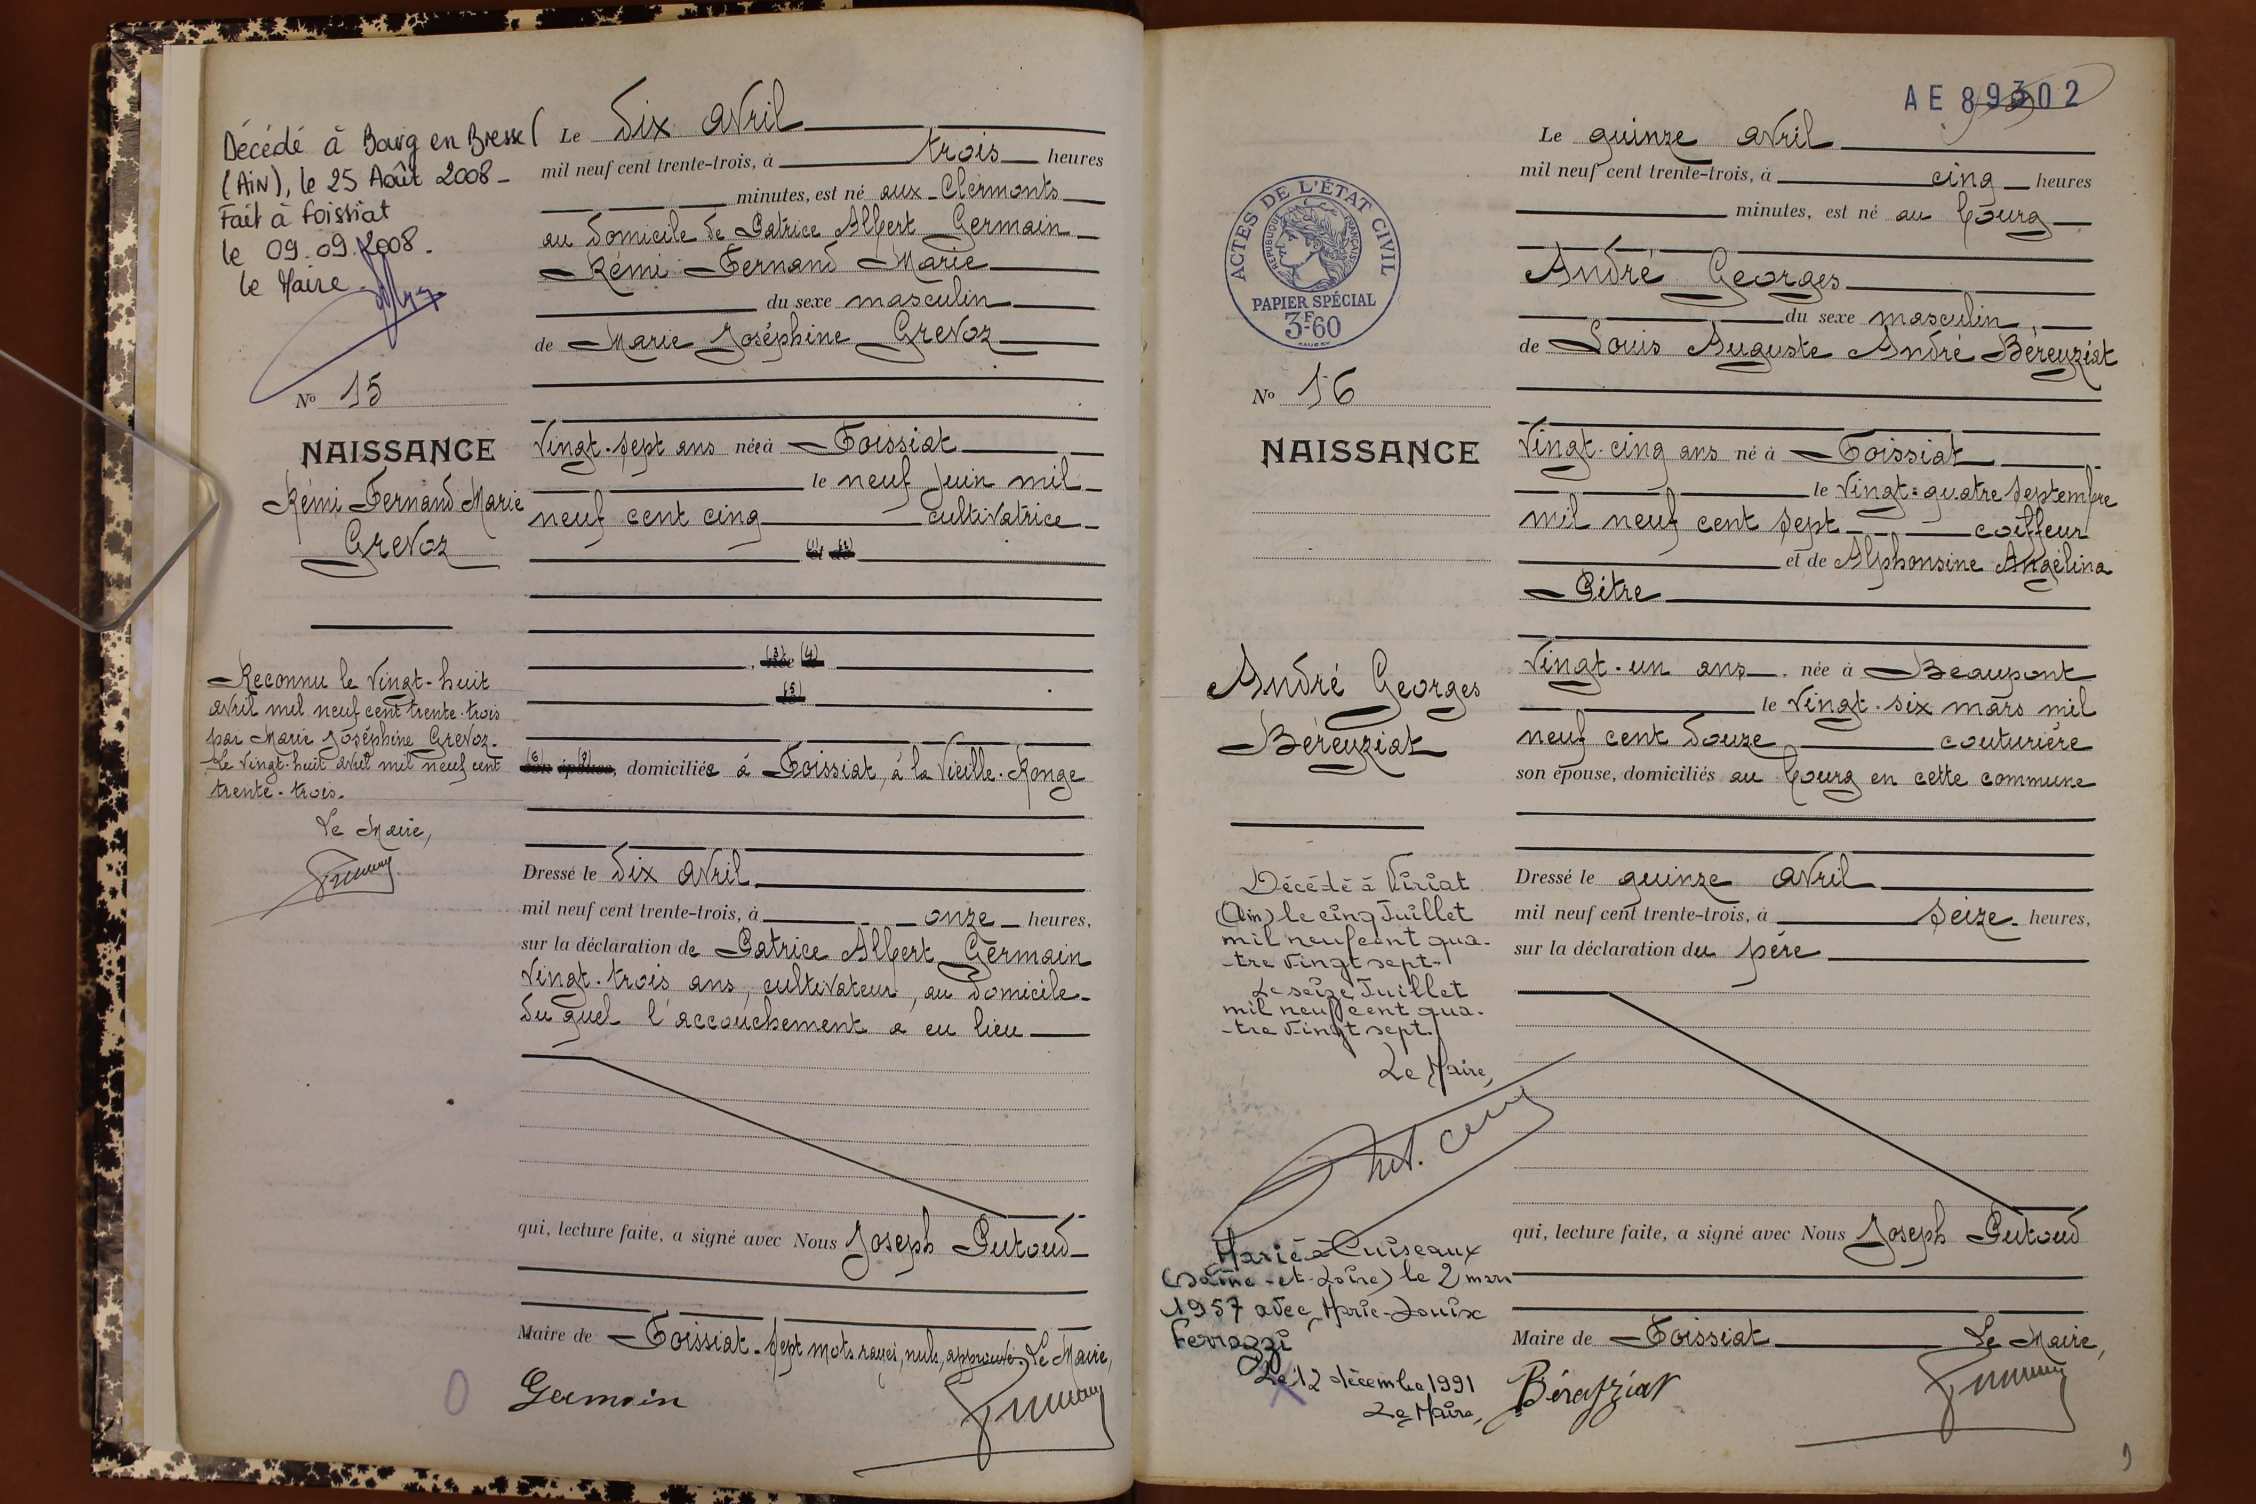 Décédé à Bourg en Bresse
(Ain), le 25 Août 2008 -
Fait à Foissiat
le 09.09.2008.
le Maire
Nº 15
NAISSANCE
Rémi Fernand Marie
Grevoz
Reconnu le vingt-huit
avril mil neuf cent trente-trois
par Marie Joséphine Grevoz.
Le vingt-huit avril mil neuf cent
trente-trois.
Le Maire,
Le dix avril
mil neuf cent trente-trois, à trois heures
minutes, est né aux Clermonts
au domicile de Patrice Albert Germain
Rémi Fernand Marie
du sexe masculin
de Marie Joséphine Grevoz
vingt-sept ans née à Foissiat
le neuf juin mil
neuf cent cinq cultivatrice
domiciliée à Foissiat, à la Vieille-Ronge
Dressé le dix avril
mil neuf cent trente-trois, à onze heures,
sur la déclaration de Patrice Albert Germain
vingt-trois ans, cultivateur, au domicile
duquel l'accouchement a eu lieu
qui, lecture faite, a signé avec Nous Joseph Putoud
Maire de Foissiat. Sept mots rayés, nuls, approuvés. Le Maire,
Germain
AE 89302
ACTES DE L'ÉTAT CIVIL
RÉPUBLIQUE FRANÇAISE
PAPIER SPÉCIAL
3F60
Nº 16
NAISSANCE
André Georges
Béreyziat
Décédé à Viriat
(Ain) le cinq Juillet
mil neuf cent qua-
-tre vingt sept.
Le seize Juillet
mil neuf cent qua-
-tre vingt sept.
Le Maire,
Marié à Cuiseaux
(Saône-et-Loire) le 2 mars
1957 avec Marie-Louise
Ferrazzi
Le 12 décembre 1991
Le Maire,
Le quinze avril
mil neuf cent trente-trois, à cinq heures
minutes, est né au bourg
André Georges
du sexe masculin,
de Louis Auguste André Béreyziat
vingt-cinq ans né à Foissiat
le vingt-quatre septembre
mil neuf cent sept coiffeur
et de Alphonsine Angélina
Pitre
vingt-un ans née à Beaupont
le vingt-six mars mil
neuf cent douze couturière
son épouse, domiciliés au bourg en cette commune
Dressé le quinze avril
mil neuf cent trente-trois, à seize heures,
sur la déclaration du père
qui, lecture faite, a signé avec Nous Joseph Putoud
Maire de Foissiat Le Maire,
Béreyziat